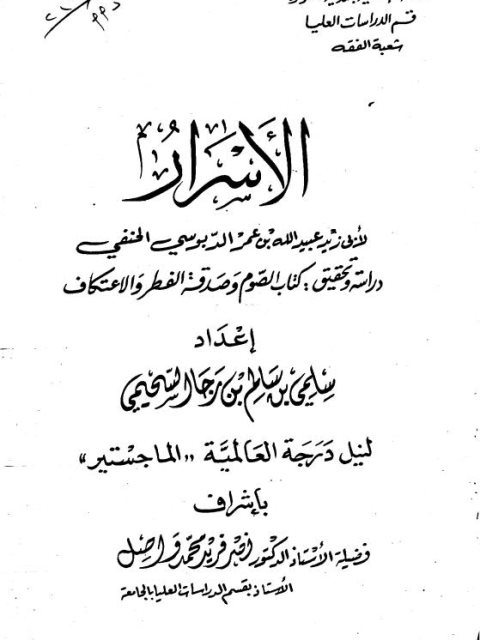 قسم الدراسات العليا
شعبة الفقه
الأسرار
لأبى زيد عبيد الله بن عمر الدبوسي الحنفي
دراسة وتحقيق : كتاب الصوم وصدقة الفطر والاعتكاف
إعداد
سليمى بن سالم بن رجا السحيمي
لنيل دَرَجَة العَالميَّة „الماجستير"
بإشراف
فضيلة الأستاذ الدكتور نصر فريد محمد واصل
الأستاذ بقسم الدراسات العليا بالجامعة